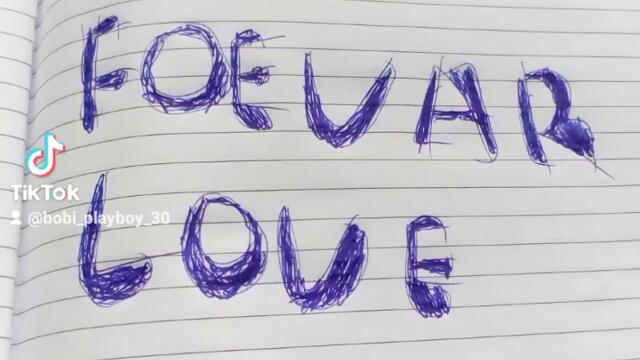 FOEVAR
LOVE
TikTok
@bobi_playboy_30